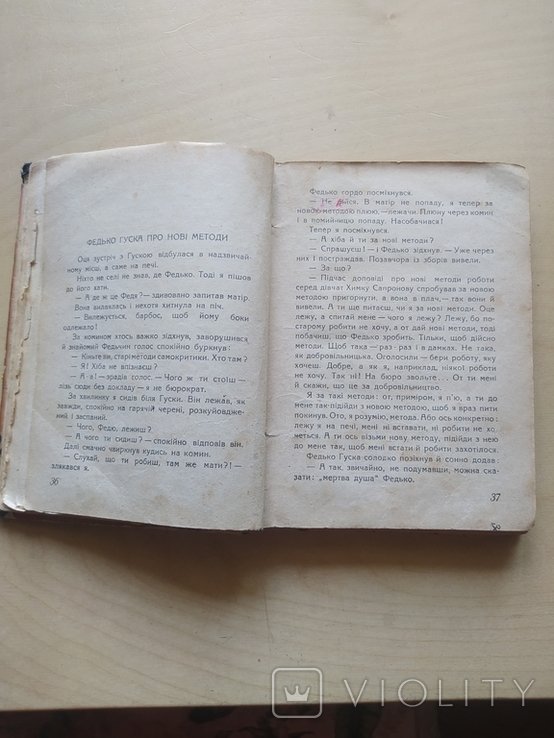 ФЕДЬКО ГУСКА ПРО НОВІ МЕТОДИ
Оця зустріч з Гускою відбулася в надзвичай-
ному місці, а саме на печі.
Ніхто не селі не знав, де Федько. Тоді я пішов
до його хати.
— А де ж це Федя? — здивовано запитав матір.
Вона вилаялась і нехотя хитнула на піч.
— Вилежується, барбос, щоб йому боки
одлежало!
За комином хтось важко зідхнув, заворушився
й знайомий Федьчин голос спокійно буркнув:
— Киньте ви, старі методи самокритики. Хто там?
— Я! Хіба не впізнаєш?
— А-а! — зрадів голос. — Чого ж ти стоїш —
лізь сюди без докладу — не бюрократ.
За хвилинку я сидів біля Гуски. Він лежав, як
завжди, спокійно на гарячій черені, розкуйовдже-
ний і заспаний.
— Чого, Федю, лежиш?
— А чого ти сидиш? — спокійно відповів він.
Далі смачно чвиркнув кудись на комин.
— Слухай, що ти робиш, там же мати?! —
злякався я.
36
Федько гордо посміхнувся.
— Не бійся. В матір не попаду, я тепер за
новою методою плюю, — лежачи. Плюну через комин
і в помийницю попаду. Насобачився!
Тепер я посміхнувся.
— А хіба й ти за нові методи?
— Спрашуєш! — і Федько зідхнув. — Уже через
них і постраждав. Позавчора із зборів вивели.
— За що?
— Підчас доповіді про нові методи роботи
серед дівчат Химку Сапронову спробував за новою
методою пригорнути, а вона в плач, — так вони й
вивели. А ти ще питаєш, чи я за нові методи. Оце
лежу, а спитай мене — чого я лежу? Лежу, бо по-
старому робити не хочу, а от дай нові методи, тоді
побачиш, що Федько зробить. Тільки, щоб дійсно
методи. Щоб така — раз-раз і в дамках. Не така,
як добровільницька. Оголосили — бери роботу, яку
хочеш. Добре, а як я, наприклад, ніякої роботи не
хочу. Так ні! На бюро звольте... От ти мені
й скажи, що це за добровільництво.
Я за такі методи: от, приміром, я п'ю, а ти до
мене так-підійди з новою методою, щоб я враз пити
покинув. Ото, я розумію, метода. Або ось конкретно:
лежу я на печі, мені ні вставати, ні робити не хо-
неться. А ти ось візьми нову методу, підійди з нею
до мене так, щоб мені встати й робити захотілося.
Федько Гуска солодко позіхнув й сонно додав:
— А так, звичайно, не подумавши, можна ска-
зати: „мертва душа" Федько.
37
VIOLITY